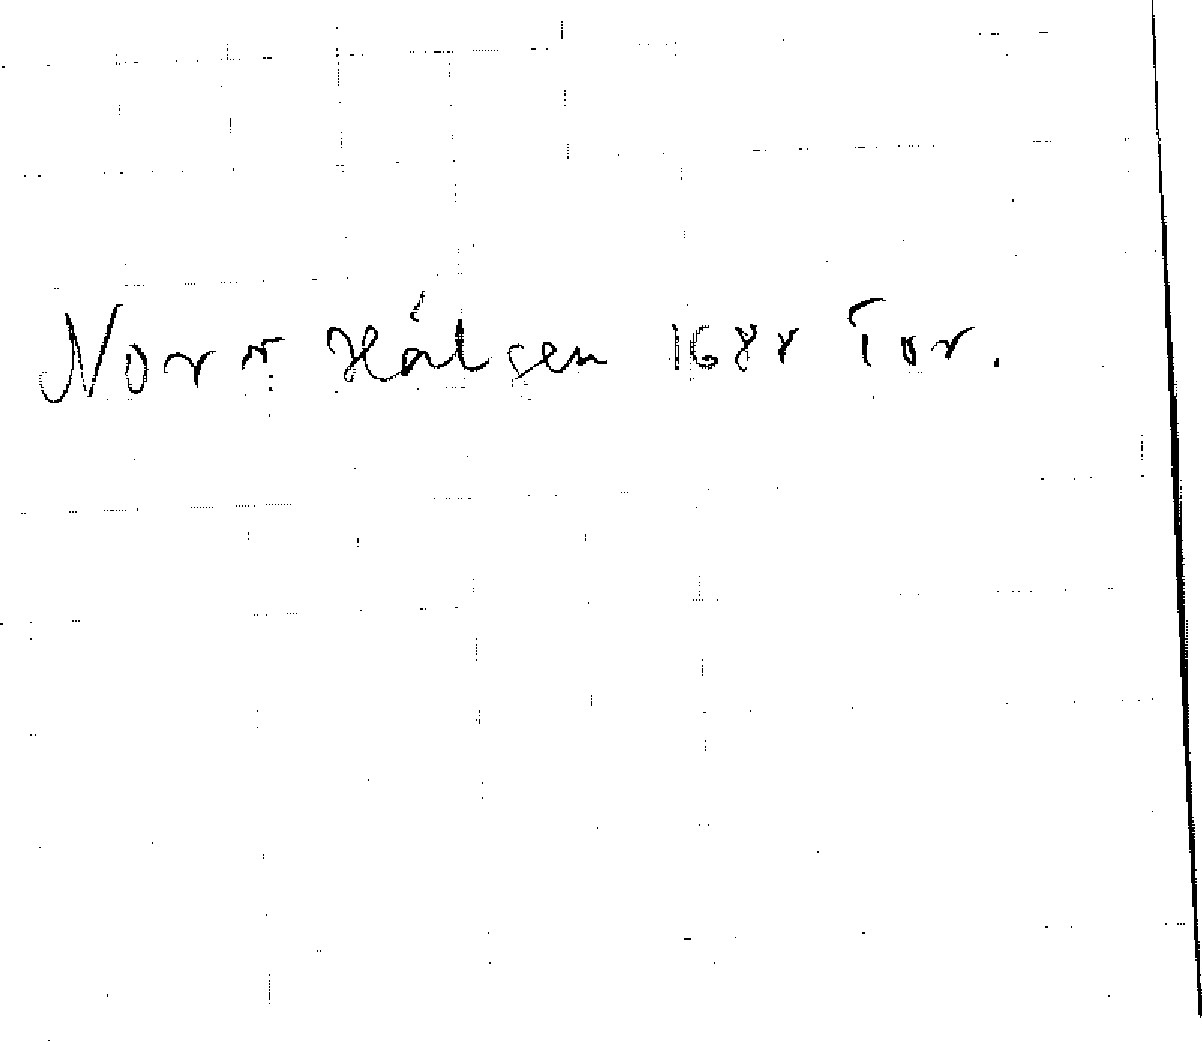 Norr Hålsen 1688 Tor.